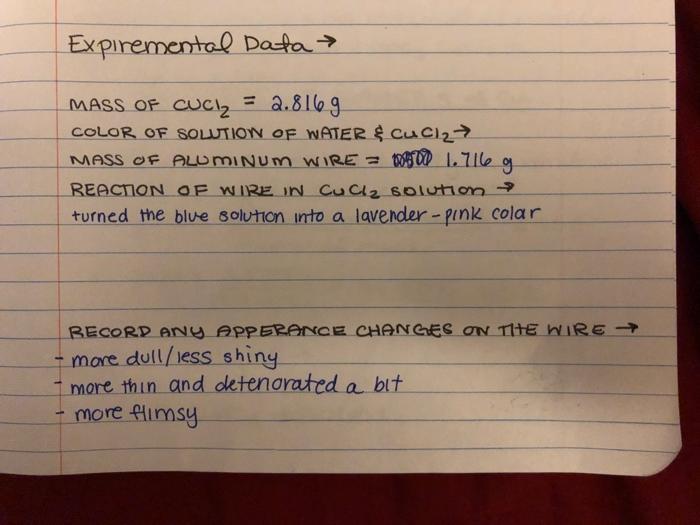 Expiremental Data →
MASS OF CUCl₂ = 2.816 g
COLOR OF SOLUTION OF WATER & CuCl₂ →
MASS OF ALUMINUM WIRE = 1.716 g
REACTION OF WIRE IN CuCl₂ SOLUTION →
turned the blue solution into a lavender-pink color
RECORD ANY APPERANCE CHANGES ON THE WIRE →
- more dull/less shiny
- more thin and deteriorated a bit
- more flimsy